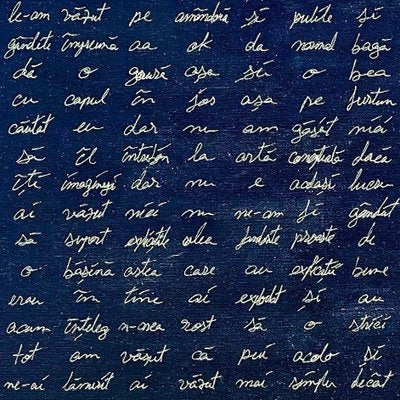 le-am văzut pe amândouă să pulite și
gândite împreună aa ok da normal bagă
dă o gaură așa și o bea
cu capul în jos așa pe furtun
căutat eu dar nu am găsit nici
să îl întreb la artă conceptuală dacă
îți imaginezi dar nu e același lucru
ai văzut nici nu ne-am fi gândit
să suport explicațiile alea proaste de
o bășină astea care au explicații bune
erau în tine ai explodat și au
acum înțeleg n-avea rost să o strici
tot am văzut că pui acolo și
ne-ai lămurit ai văzut mai simplu decât